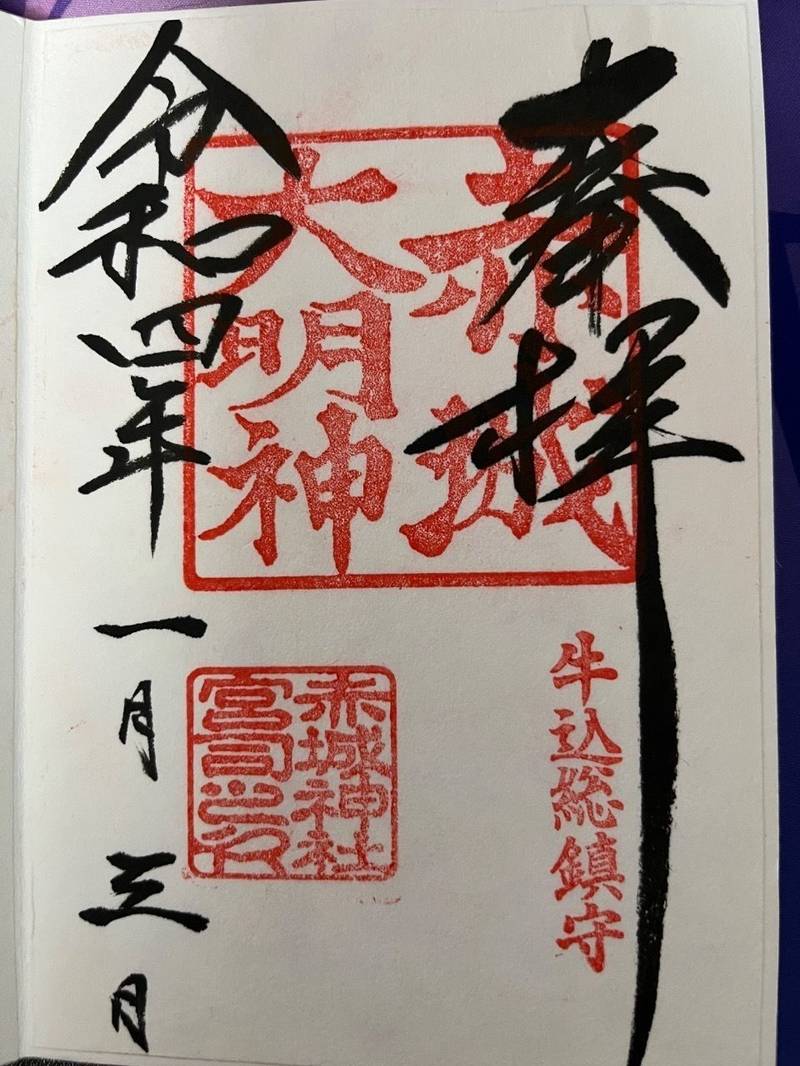 奉拝
牛込総鎮守
赤城
大明神
赤城神社
宮司之印
令和四年一月三日